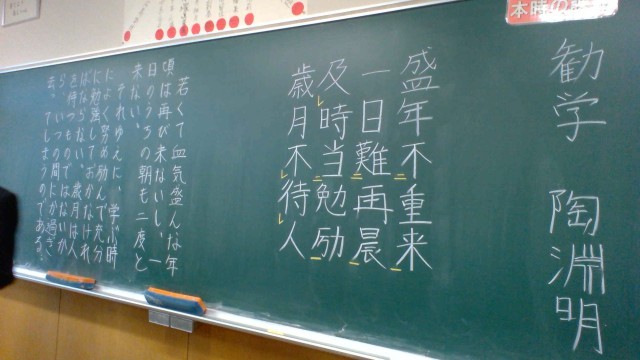 本時の
勧学 陶淵明
盛年不重来
一日難再晨
及時当勉励
歳月不待人
若くて血気盛んな年
頃は再び来ないし、一
日のうちの朝も二度と
来ない。
それゆえに、学ぶ時
によく努め励んで充分
に勉強しておかなけれ
ばならない。歳月は人
を待つものではないか
ら、いつの間にか過ぎ
去ってしまうのである。